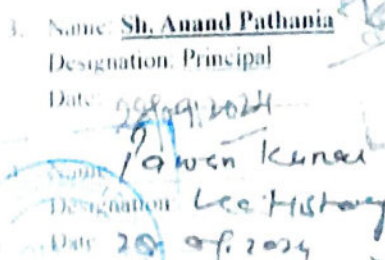 3. Name: Sh. Anand Pathania
Designation: Principal
Date: 28/09/2024
Name: Pawan Kumar
Designation: Lec History
Date